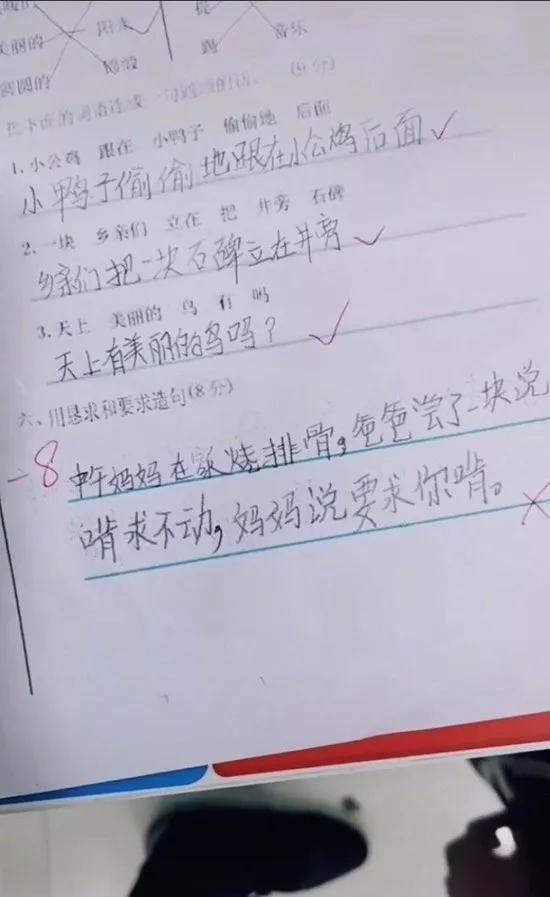 美丽的
圆圆的 音乐
把下面的词语连成一句通顺的话。
1. 小公鸡 跟在 小鸭子 偷偷地 后面
小鸭子偷偷地跟在小公鸡后面
2. 一块 乡亲们 立在 把 井旁 石碑
乡亲们把一块石碑立在井旁
3. 天上 美丽的 鸟 有 吗
天上有美丽的鸟吗?
六、用恳求和要求造句(8分)
-8 中午妈妈在家烧排骨,爸爸尝了一块说
啃求不动,妈妈说要求你啃。